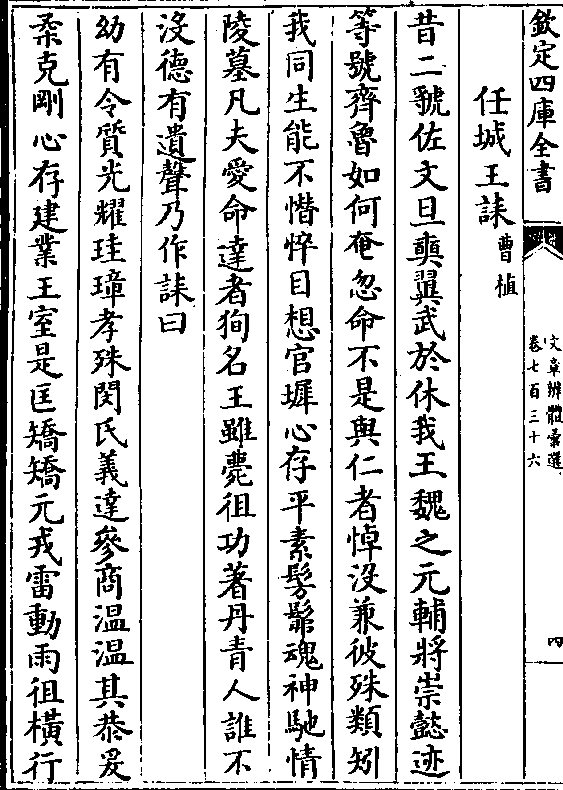 欽定四庫全書
文章辨體彙選
卷七百三十六
四
任城王誄
曹植
昔二虢佐文旦奭翼武於休我王魏之元輔將崇懿迹
等號齊魯如何奄忽命不是與仁者悼沒兼彼殊類矧
我同生能不憯悴目想官墀心存平素髣髴魂神馳情
陵墓凡夫愛命達者狥名王雖薨徂功著丹青人誰不
沒德有遺聲乃作誄曰
幼有令質光耀珪璋孝殊閔氏義達參商温温其恭爰
柔克剛心存建業王室是匡矯矯元戎雷動雨徂橫行